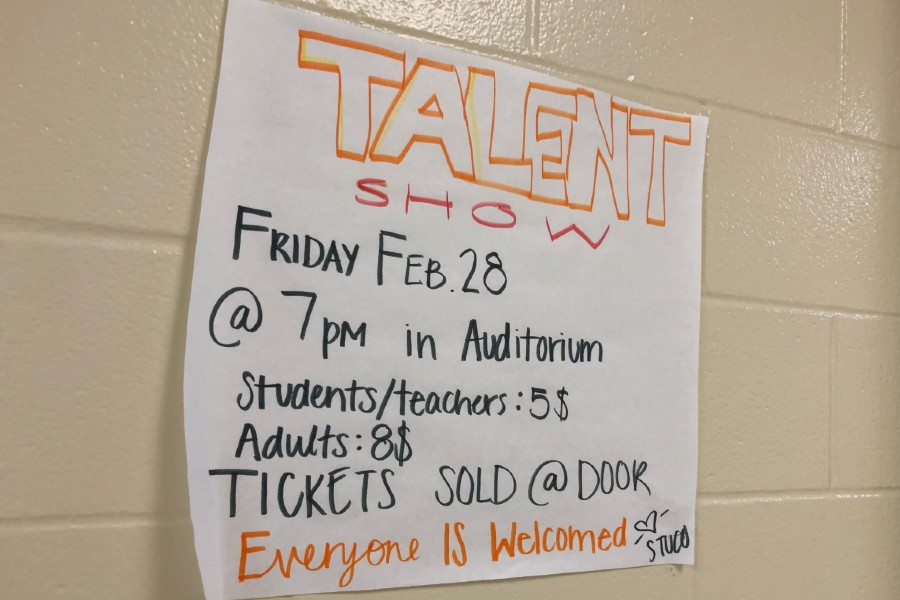 TALENT
SHOW
FRIDAY FEB. 28
@ 7PM in Auditorium
Students/teachers: 5$
Adults: 8$
TICKETS SOLD @ DOOR
Everyone IS Welcomed
STUCO